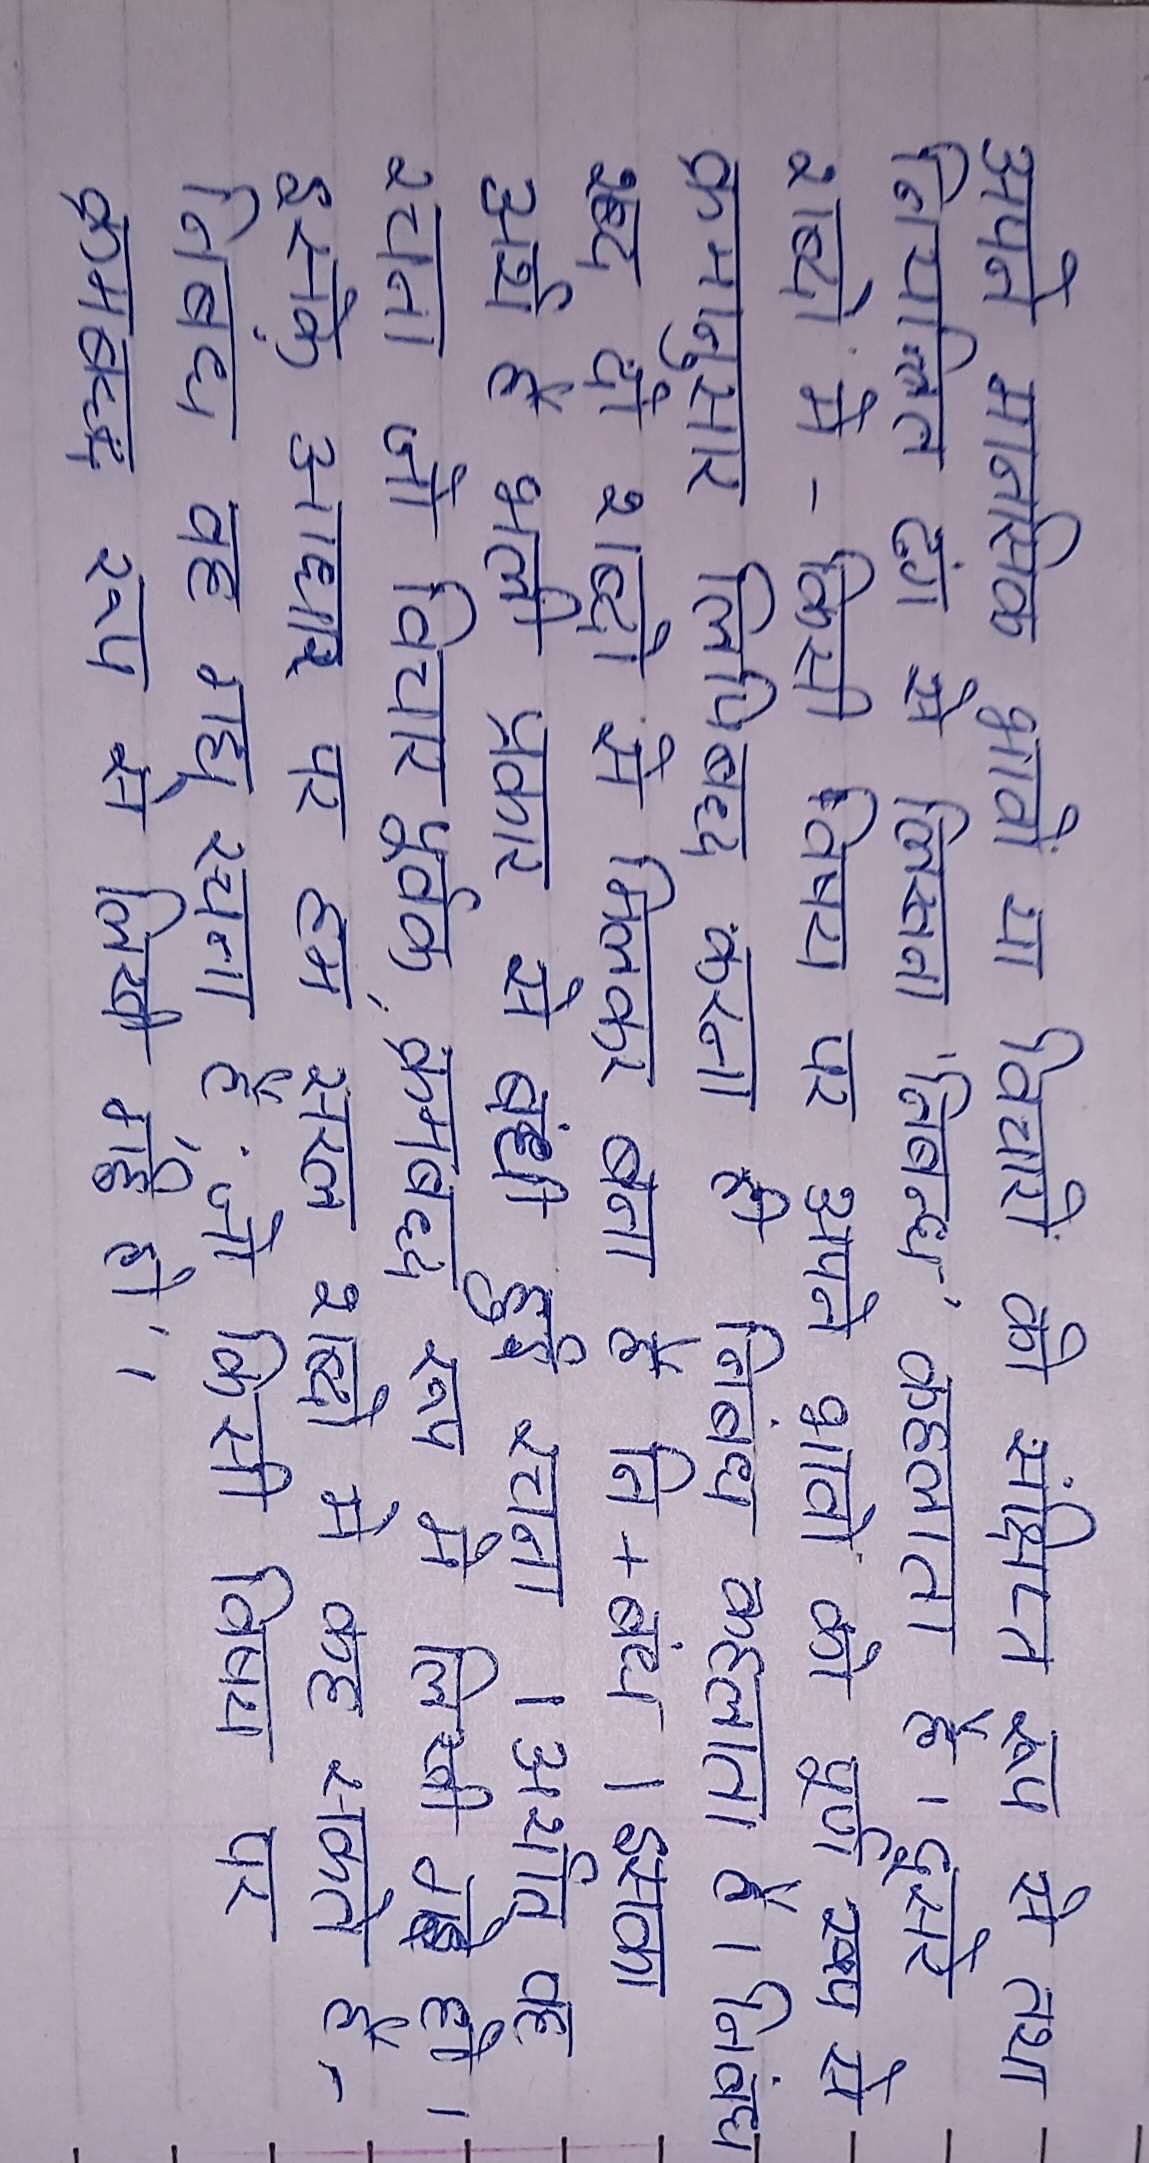 अपने मानसिक भावों या विचारों को संक्षिप्त रूप से तथा
नियन्त्रित ढंग से लिखना 'निबन्ध' कहलाता है। दूसरे
शब्दों में - किसी विषय पर अपने भावों को पूर्ण रूप से
क्रमानुसार लिपिबध्द करना ही निबंध कहलाता है। निबंध
शब्द दो शब्दों से मिलकर बना है नि + बंध । इसका
अर्थ है भली प्रकार से बंधी हुई रचना । अर्थात् वह
रचना जो विचार पूर्वक, क्रमबध्द रूप में लिखी गई हो।
इसके आधार पर हम सरल शब्दों में कह सकते हैं -
निबंध वह गद्य रचना है, जो किसी विषय पर
क्रमबध्द रूप से लिखी गई हो'।